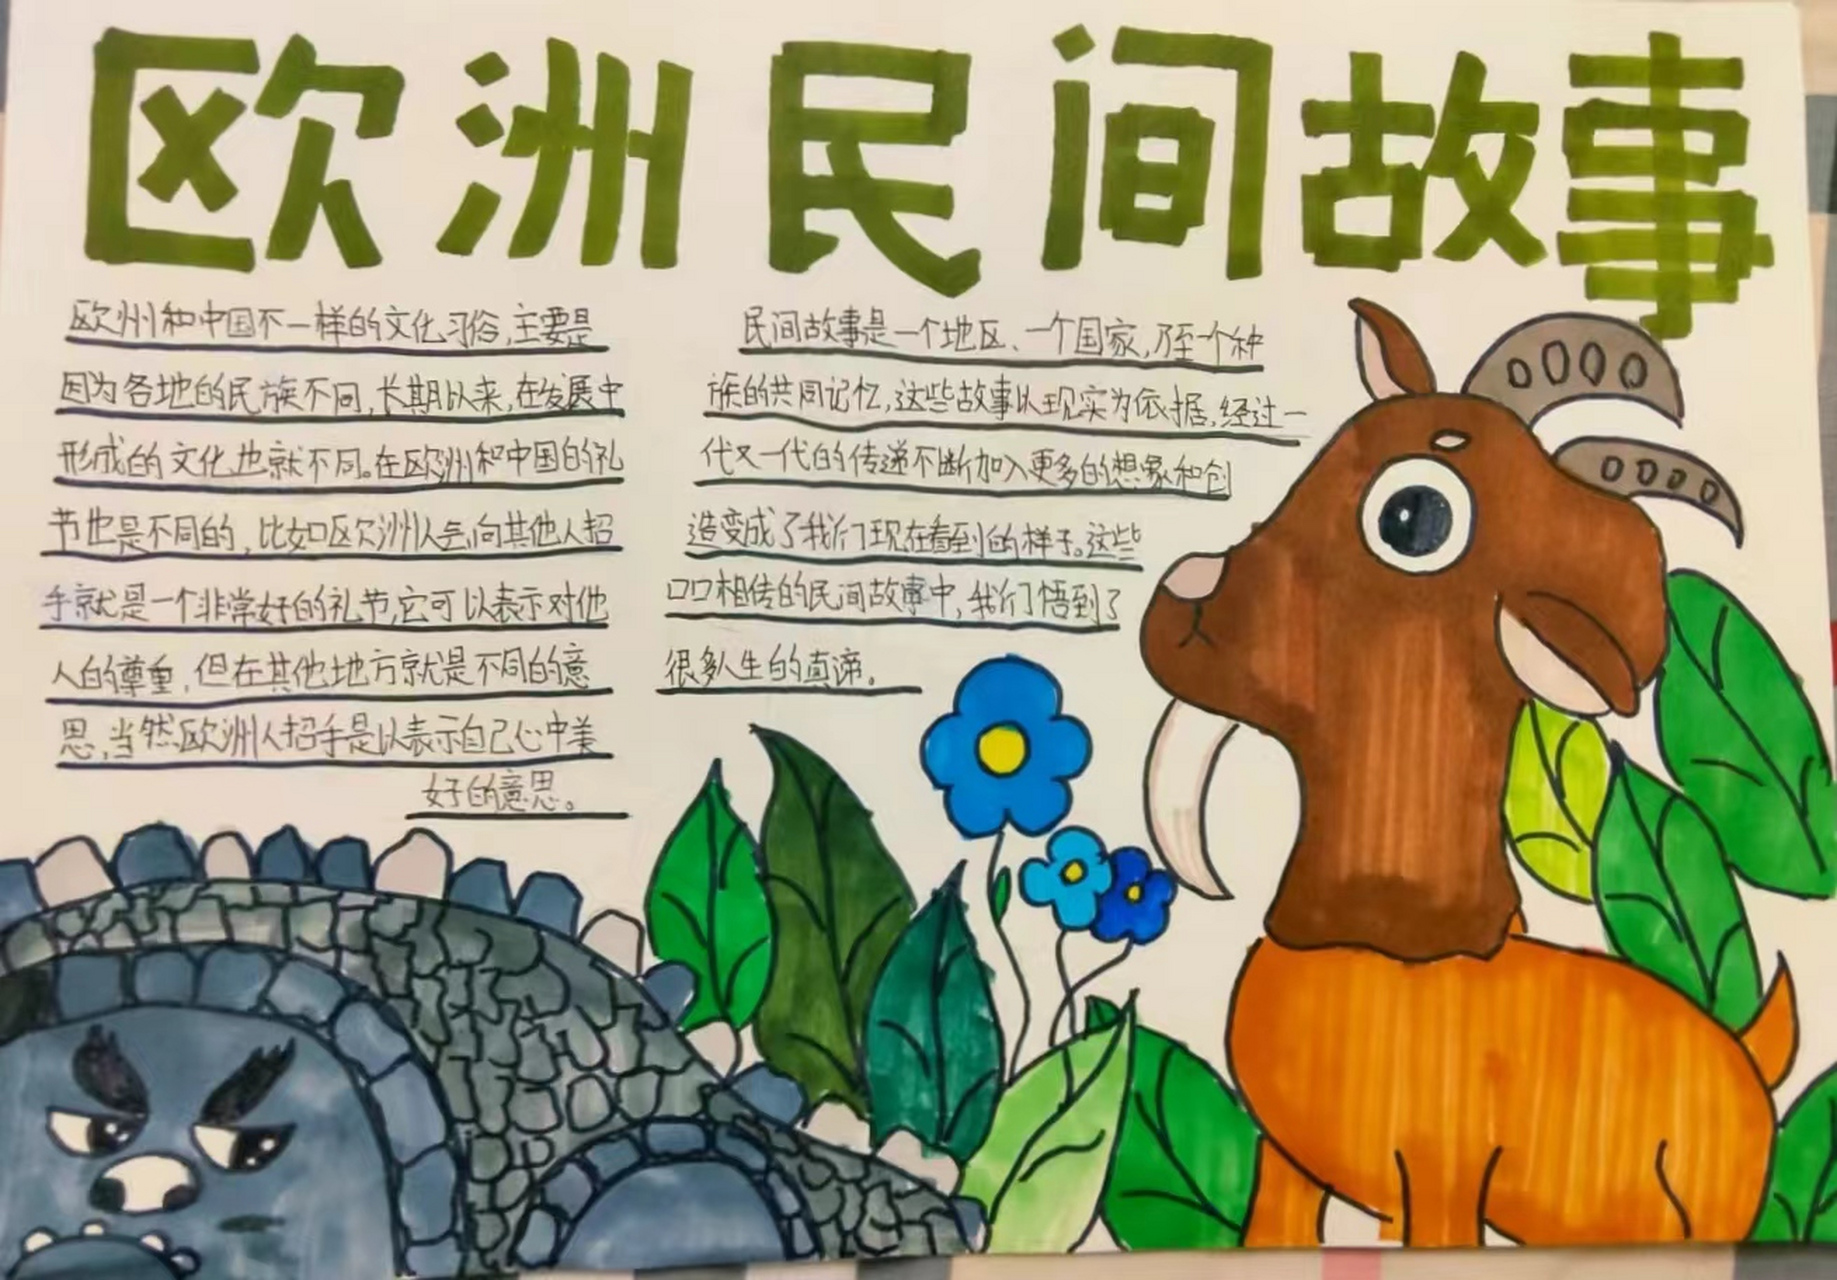 欧洲民间故事
欧洲和中国不一样的文化习俗,主要是
因为各地的民族不同,长期以来,在发展中
形成的文化也就不同。在欧洲和中国的礼
节也是不同的,比如欧洲人会向其他人招
手就是一个非常好的礼节,它可以表示对他
人的尊重,但在其他地方就是不同的意
思,当然欧洲人招手是以表示自己心中美
好的意思。
民间故事是一个地区、一个国家,乃至一个种
族的共同记忆,这些故事以现实为依据,经过一
代又一代的传递不断加入更多的想象和创
造变成了我们现在看到的样子。这些
口口相传的民间故事中,我们悟到了
很多人生的真谛。